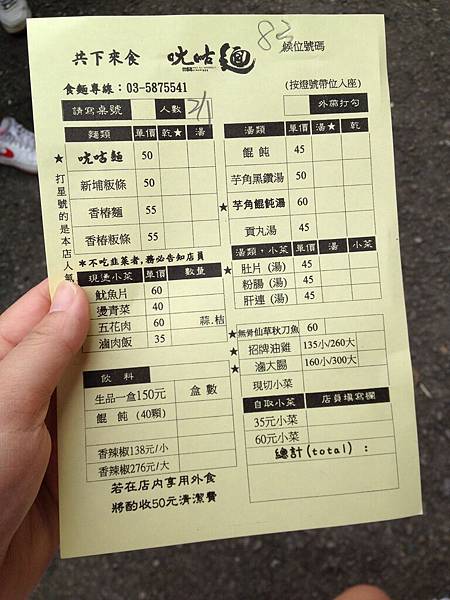 共下來食 咣咕麵 83 候位號碼
食麵專線：03-5875541 (按燈號帶位入座)
請寫桌號 人數 外帶打勾
麵類 單價 乾★ 湯
★ 咣咕麵 50
新埔粄條 50
香椿麵 55
香椿粄條 55
打星號的是本店人氣
*不吃韭菜者,務必告知店員
現燙小菜 單價 數量
魷魚片 60
燙青菜 40
五花肉 60 蒜.桔
滷肉飯 35
飲料
生品一盒150元 盒數
餛飩 (40顆)
香辣椒138元/小
香辣椒276元/大
若在店內享用外食
將酌收50元清潔費
湯類 單價 湯★ 乾
餛飩 45
芋角黑鑽湯 50
★ 芋角餛飩湯 60
貢丸湯 45
湯類，小菜 單價 湯 小菜
★ 肚片 (湯) 45
粉腸 (湯) 45
肝連 (湯) 45
★ 無骨仙草秋刀魚 60
★ 招牌油雞 135小/260大
★ 滷大腸 160小/300大
現切小菜
自取小菜 店員填寫欄
35元小菜
60元小菜
總計(total) ：